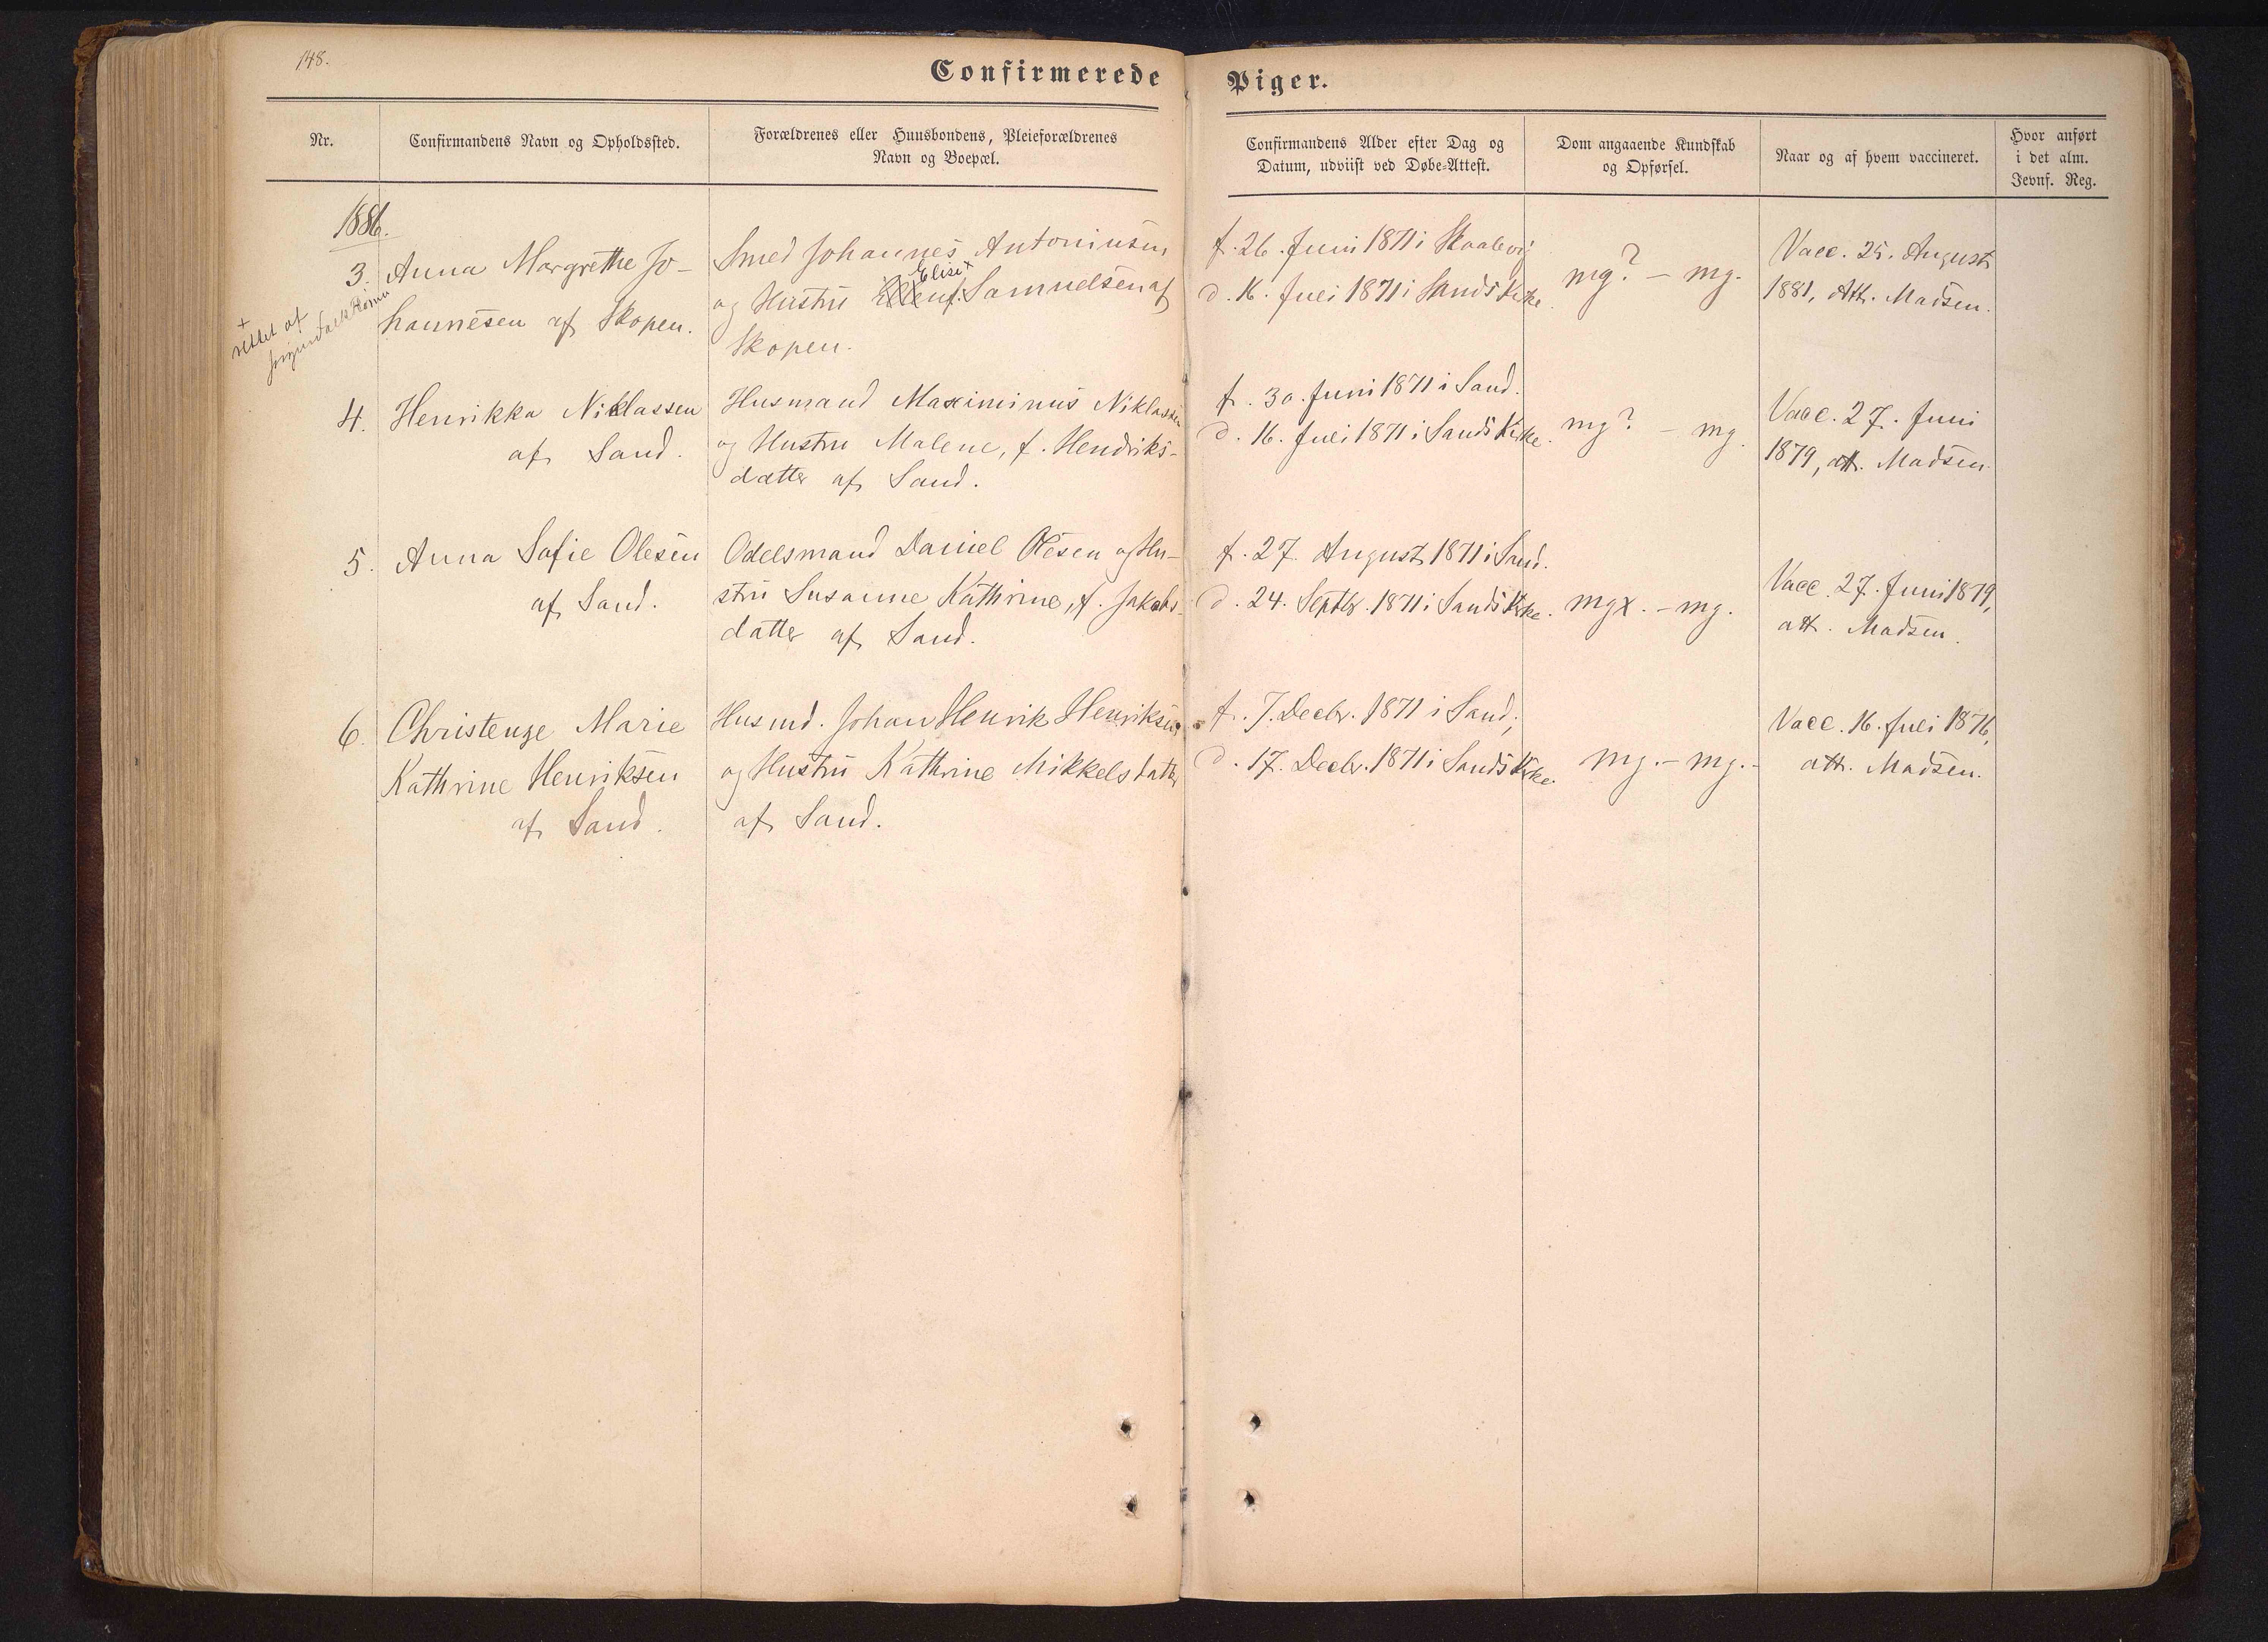 148.
Confirmerede Piger.
Nr.
Confirmandens Navn og Opholdssted.
Forældrenes eller Huusbondens, Pleieforældrenes
Navn og Boepæl.
Confirmandens Alder efter Dag og
Datum, udviist ved Døbe-Attest.
Dom angaaende Kundskab
og Opførsel.
Naar og af hvem vaccineret.
Hvor anført
i det alm.
Jevnf. Reg.
1886.
3.
+
rettet af
Anna Margrethe Jo-
hannesen af Skopen.
Smed Johannes Antoniusen
Elise+
og Hustru f. Samuelsen af
Skopen.
f. 26. Juni 1871 i Skaalevig
d. 16. Juli 1871 i Sands Kirke.
mg? - mg.
Vacc. 25. August
1881, Att. Madsen.
4.
Henrikka Niklassen
af Sand.
Husmand Maximinus Niklassen
og Hustru Malene, f. Hendriks-
datter af Sand.
f. 30. Juni 1871 i Sand.
d. 16. Juli 1871 i Sands Kirke.
mg? - mg.
Vacc. 27. Juni
1879, att. Madsen.
5.
Anna Sofie Olesen
af Sand.
Odelsmand Daniel Olesen og Hu-
stru Susanne Kathrine, f. Jakobs-
datter af Sand.
f. 27. August 1871 i Sand.
d. 24. Septbr. 1871 i Sands Kirke.
mgx. - mg.
Vacc. 27. Juni 1879,
att. Madsen.
6.
Christense Marie
Kathrine Henriksen
af Sand.
Husmd. Johan Henrik Henriksen
og Hustru Kathrine Mikkelsdatter
af Sand.
f. 7. Decbr. 1871 i Sand,
d. 17. Decbr. 1871 i Sands Kirke.
mg. - mg. -
Vacc. 16. Juli 1876,
att. Madsen.